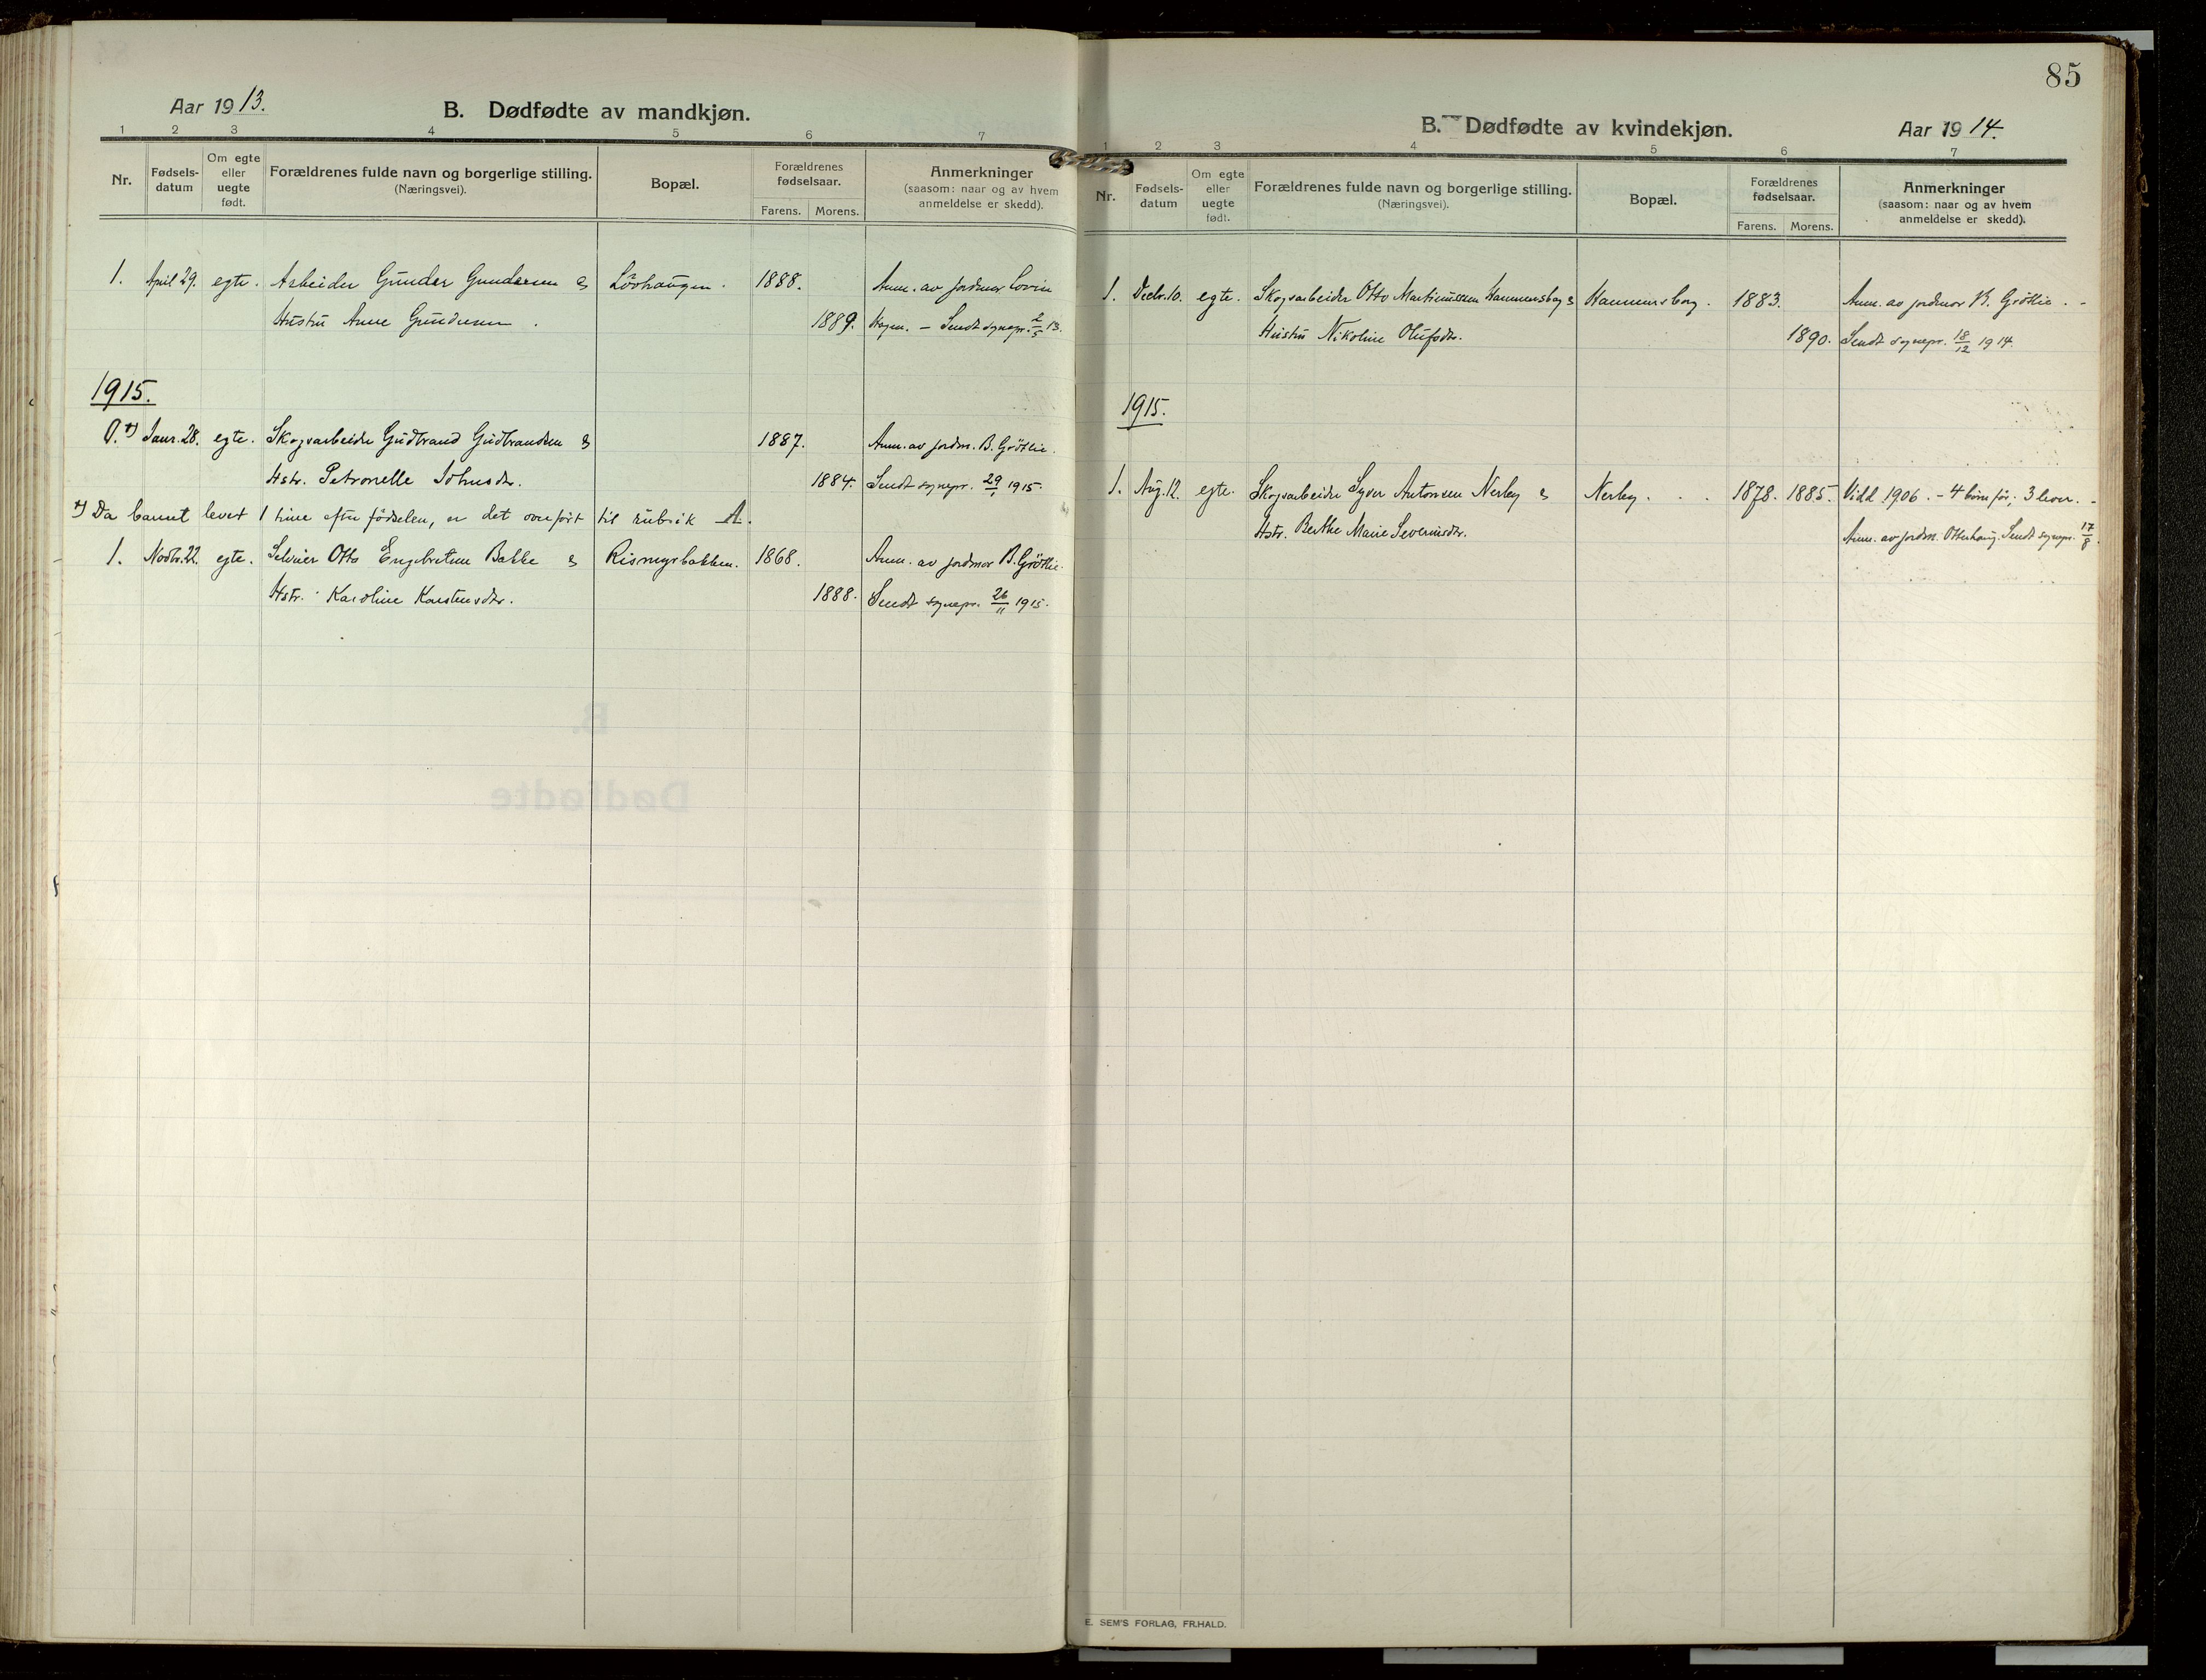 Aar 1913.
B. Dødfødte av mandkjøn.
1 2 3 4 5 6 7
Nr. Fødsels-datum Om egte eller uegte født. Forældrenes fulde navn og borgerlige stilling. (Næringsvei). Bopæl. Forældrenes fødselsaar. Farens. Morens. Anmerkninger (saasom: naar og av hvem anmeldelse er skedd).
1. April 29. egte. Arbeider Gunder Gundersen & Lövhaugen. 1888. Anm. av jordmor Lovise
Hustru Anne Gundersen. 1889. Hagen. – Sendt sognepr. 2/5 13.
1915.
0. *) Janr. 28. egte. Skogsarbeider Gudbrand Gudbrandsen & 1887. Anm. av jordm. B. Grötlie.
Hstr. Petronelle Johnsdr. 1884. Sendt sognepr. 29/1 1915.
*) Da barnet levet 1 time efter födselen, er det overfört til rubrik A.
1. Novbr. 22. egte. Selveier Otto Engebretsen Bakke & Rismyrbakken. 1868. Anm. av jordmor B. Grötlie.
Hstr. Karoline Karstensdr. 1888. Sendt sognepr. 26/11 1915.
85
B. Dødfødte av kvindekjøn.
Aar 1914.
1 2 3 4 5 6 7
Nr. Fødsels-datum Om egte eller uegte født. Forældrenes fulde navn og borgerlige stilling. (Næringsvei). Bopæl. Forældrenes fødselsaar. Farens. Morens. Anmerkninger (saasom: naar og av hvem anmeldelse er skedd).
1. Decbr. 10. egte. Skogsarbeider Otto Martinussen Hammersborg & Hammersborg. 1883. Anm. av jordmor B. Grötlie. -
Hustru Nikoline Olufsdr. 1890. Sendt sognepr. 18/12 1914.
1915.
1. Aug. 12. egte. Skogsarbeider Syver Antonsen Nerby & Nerby. 1878. 1885. Vidd 1906. – 4 börn för; 3 lever. -
Hstr. Berthe Marie Severinsdr. Anm. av jordm. Otterhaug. Sendt sognepr. 17/8.
E. SEM'S FORLAG, FR.HALD.